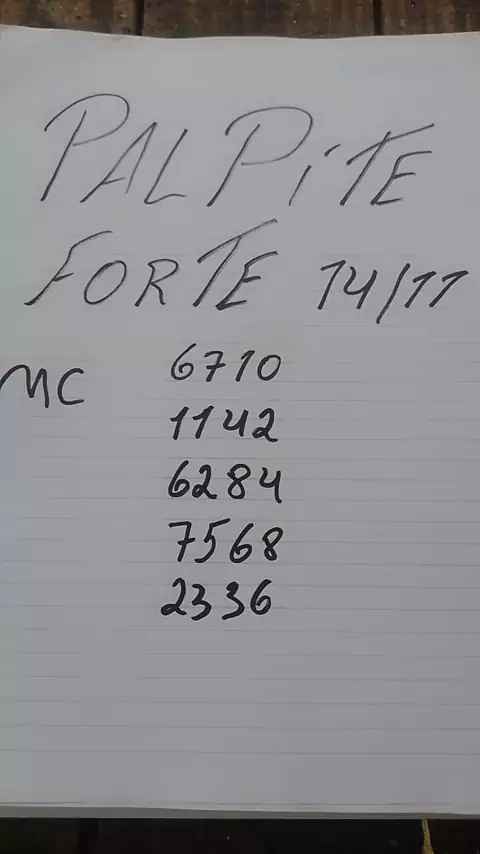 PALPiTE
FORTE 14/11
MC 6710
1142
6284
7568
2336